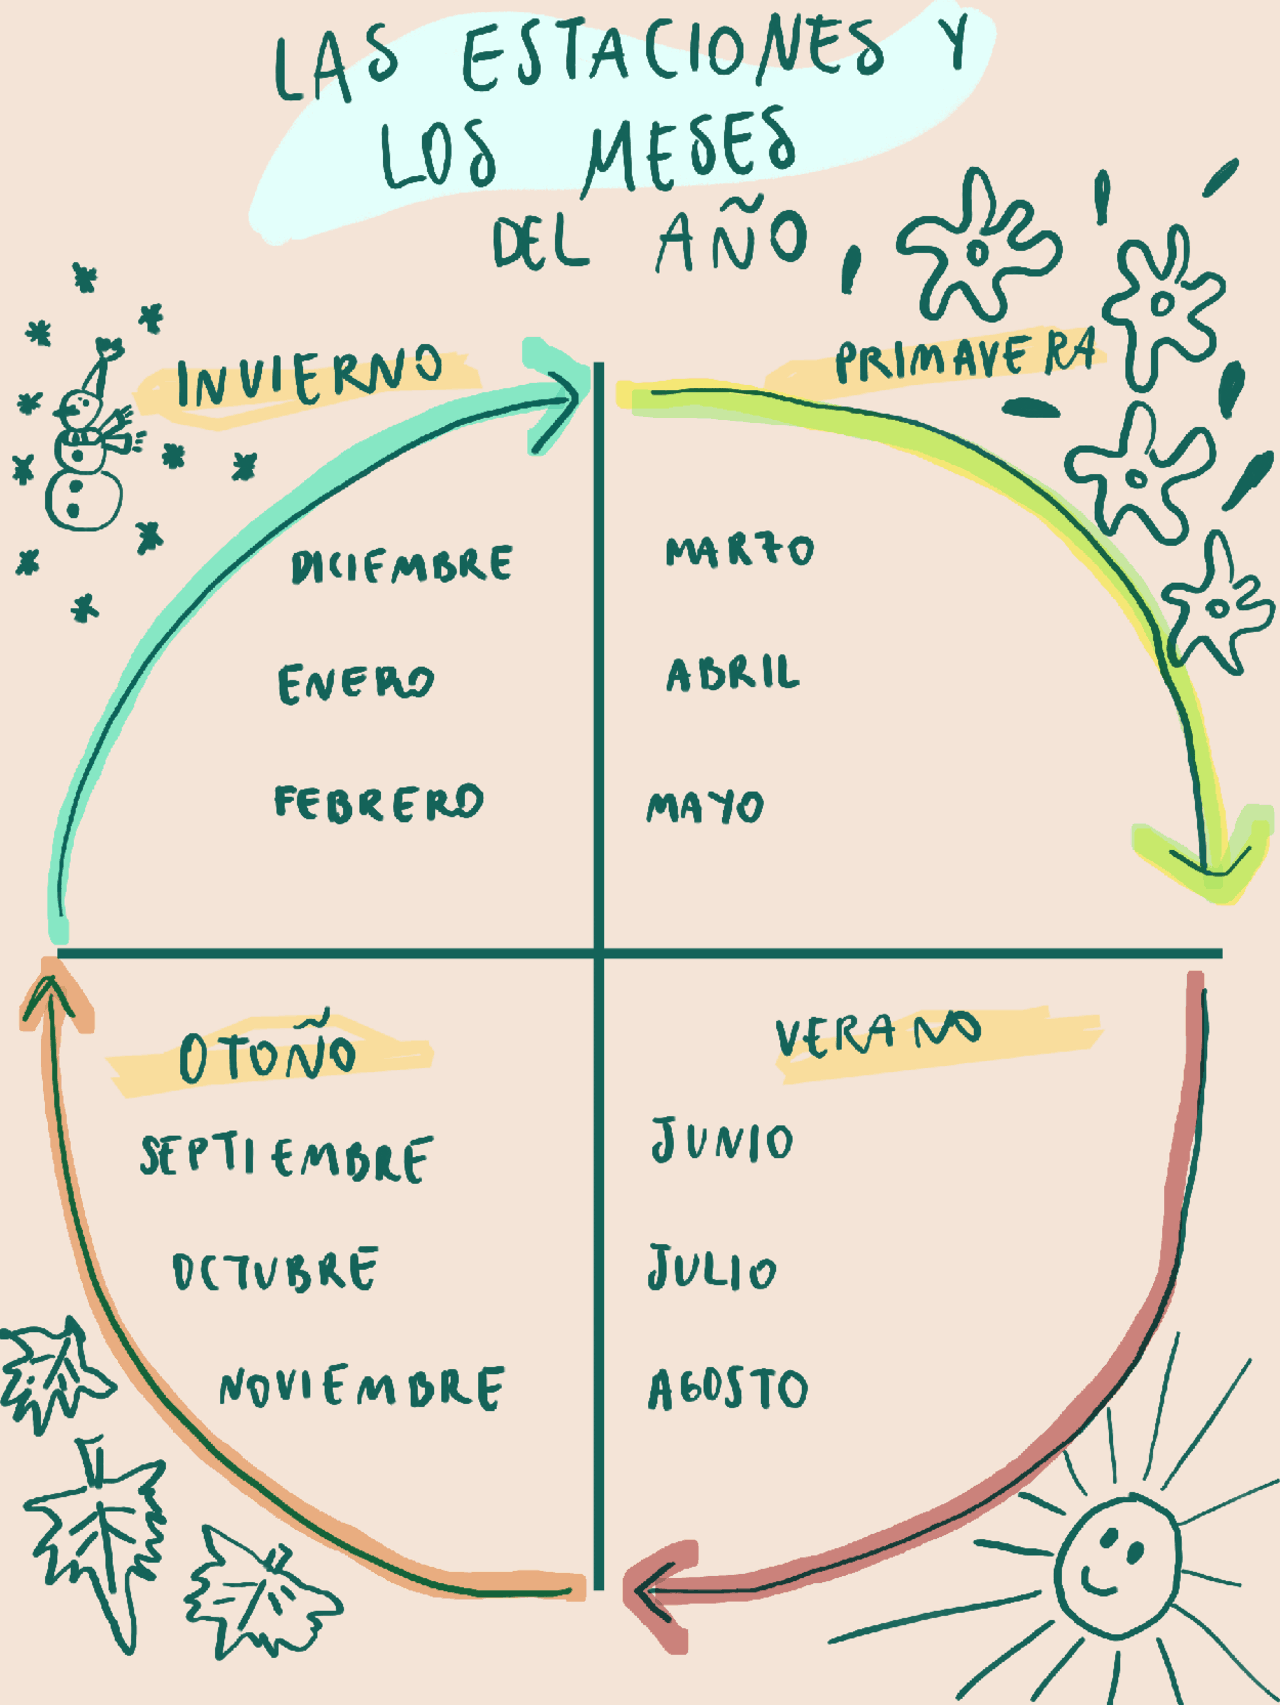 LAS ESTACIONES Y
LOS MESES
DEL AÑO
INVIERNO
DICIEMBRE
ENERO
FEBRERO
PRIMAVERA
MARZO
ABRIL
MAYO
OTOÑO
SEPTIEMBRE
OCTUBRE
NOVIEMBRE
VERANO
JUNIO
JULIO
AGOSTO